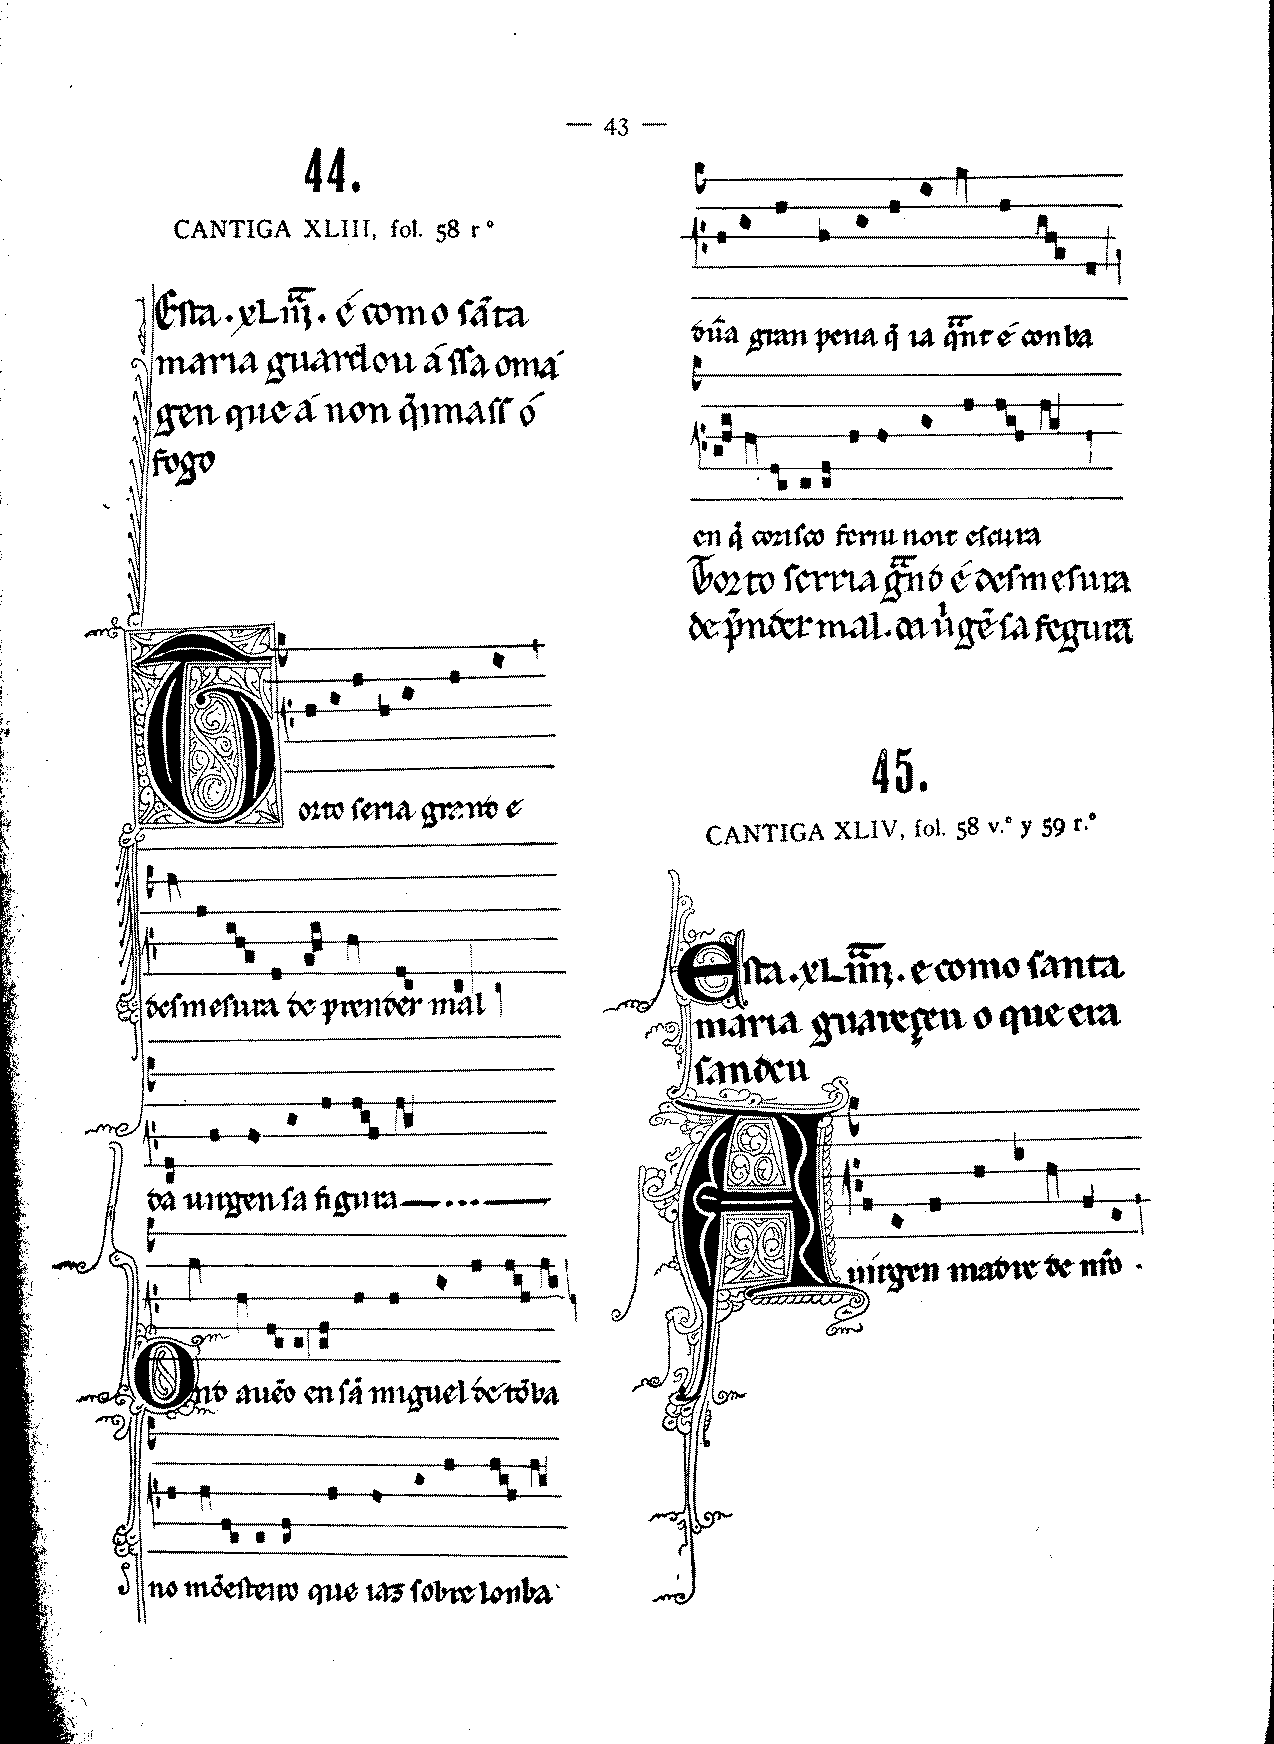 — 43 —
44.
CANTIGA XLIII, fol. 58 r°
Esta .xLiii. é como sãta
maria guardou a ssa oma
gen que a non q̃imass ó
fogo
Torto seria grand e
desmesura de prender mal
da uirgen sa figura
Ond auẽo en sã miguel de tõba
no mõesteiro que iaz sobre lonba
dũa gran pena q̃ ia q̃nt é conba
en q̃ corisco feriu noit escura
Torto serria g̃nd é desmesura
de p̃nder mal. da uĩgẽ sa fegura
45.
CANTIGA XLIV, fol. 58 v.° y 59 r.°
Esta .xLiiii. e como santa
maria guareçeu o que era
sandeu
A uirgen madre de nr̃o .